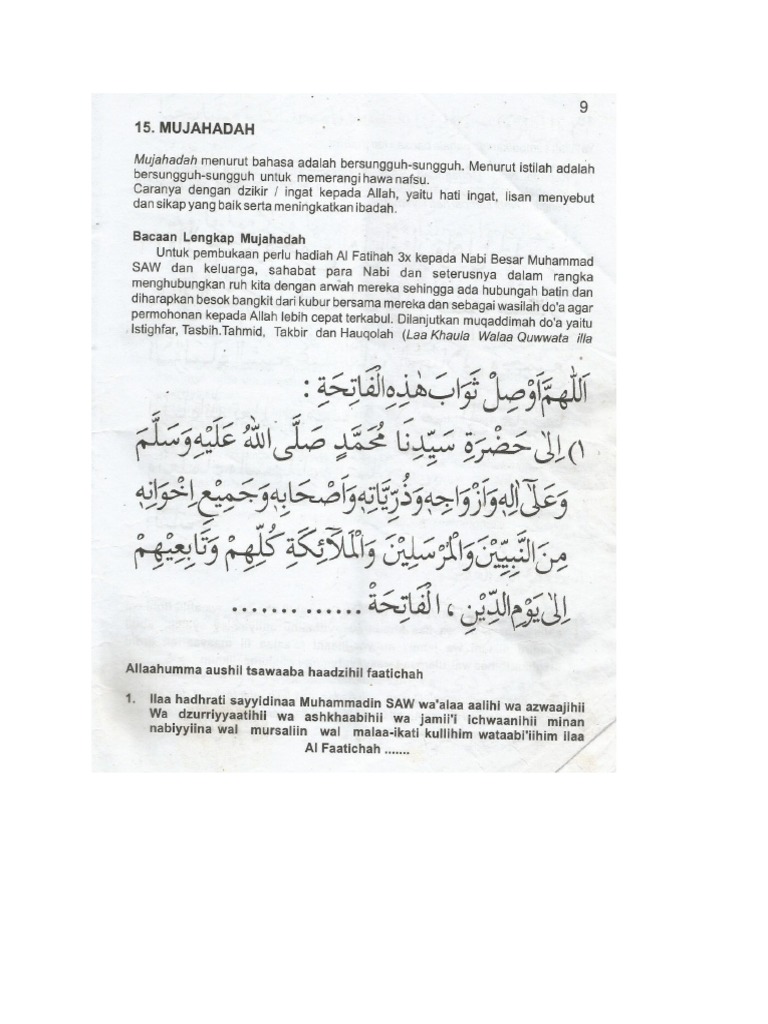 9
15. MUJAHADAH
Mujahadah menurut bahasa adalah bersungguh-sungguh. Menurut istilah adalah
bersungguh-sungguh untuk memerangi hawa nafsu.
Caranya dengan dzikir / ingat kepada Allah, yaitu hati ingat, lisan menyebut
dan sikap yang baik serta meningkatkan ibadah.
Bacaan Lengkap Mujahadah
Untuk pembukaan perlu hadiah Al Fatihah 3x kepada Nabi Besar Muhammad
SAW dan keluarga, sahabat para Nabi dan seterusnya dalam rangka
menghubungkan ruh kita dengan arwah mereka sehingga ada hubungah batin dan
diharapkan besok bangkit dari kubur bersama mereka dan sebagai wasilah do'a agar
permohonan kepada Allah lebih cepat terkabul. Dilanjutkan muqaddimah do'a yaitu
Istighfar, Tasbih.Tahmid, Takbir dan Hauqolah (Laa Khaula Walaa Quwwata illa
اَللّٰهُمَّ اَوْصِلْ ثَوَابَ هٰذِهِ الْفَاتِحَةِ :
١) اِلىٰ حَضْرَةِ سَيِّدِنَا مُحَمَّدٍ صَلَّى اللهُ عَلَيْهِ وَسَلَّمَ
وَعَلىٰٓ اٰلِهٖ وَاَزْوَاجِهٖ وَذُرِّيَّاتِهٖ وَاَصْحَابِهٖ وَجَمِيْعِ اِخْوَانِهٖ
مِنَ النَّبِيِّيْنَ وَالْمُرْسَلِيْنَ وَالْمَلَآئِكَةِ كُلِّهِمْ وَتَابِعِيْهِمْ
اِلىٰ يَوْمِ الدِّيْنِ ، الْفَاتِحَةْ ...... .......
Allaahumma aushil tsawaaba haadzihil faatichah
1. Ilaa hadhrati sayyidinaa Muhammadin SAW wa'alaa aalihi wa azwaajihii
Wa dzurriyyaatihii wa ashkhaabihii wa jamii'i ichwaanihii minan
nabiyyiina wal mursaliin wal malaa-ikati kullihim wataabi'iihim ilaa
Al Faatichah .......